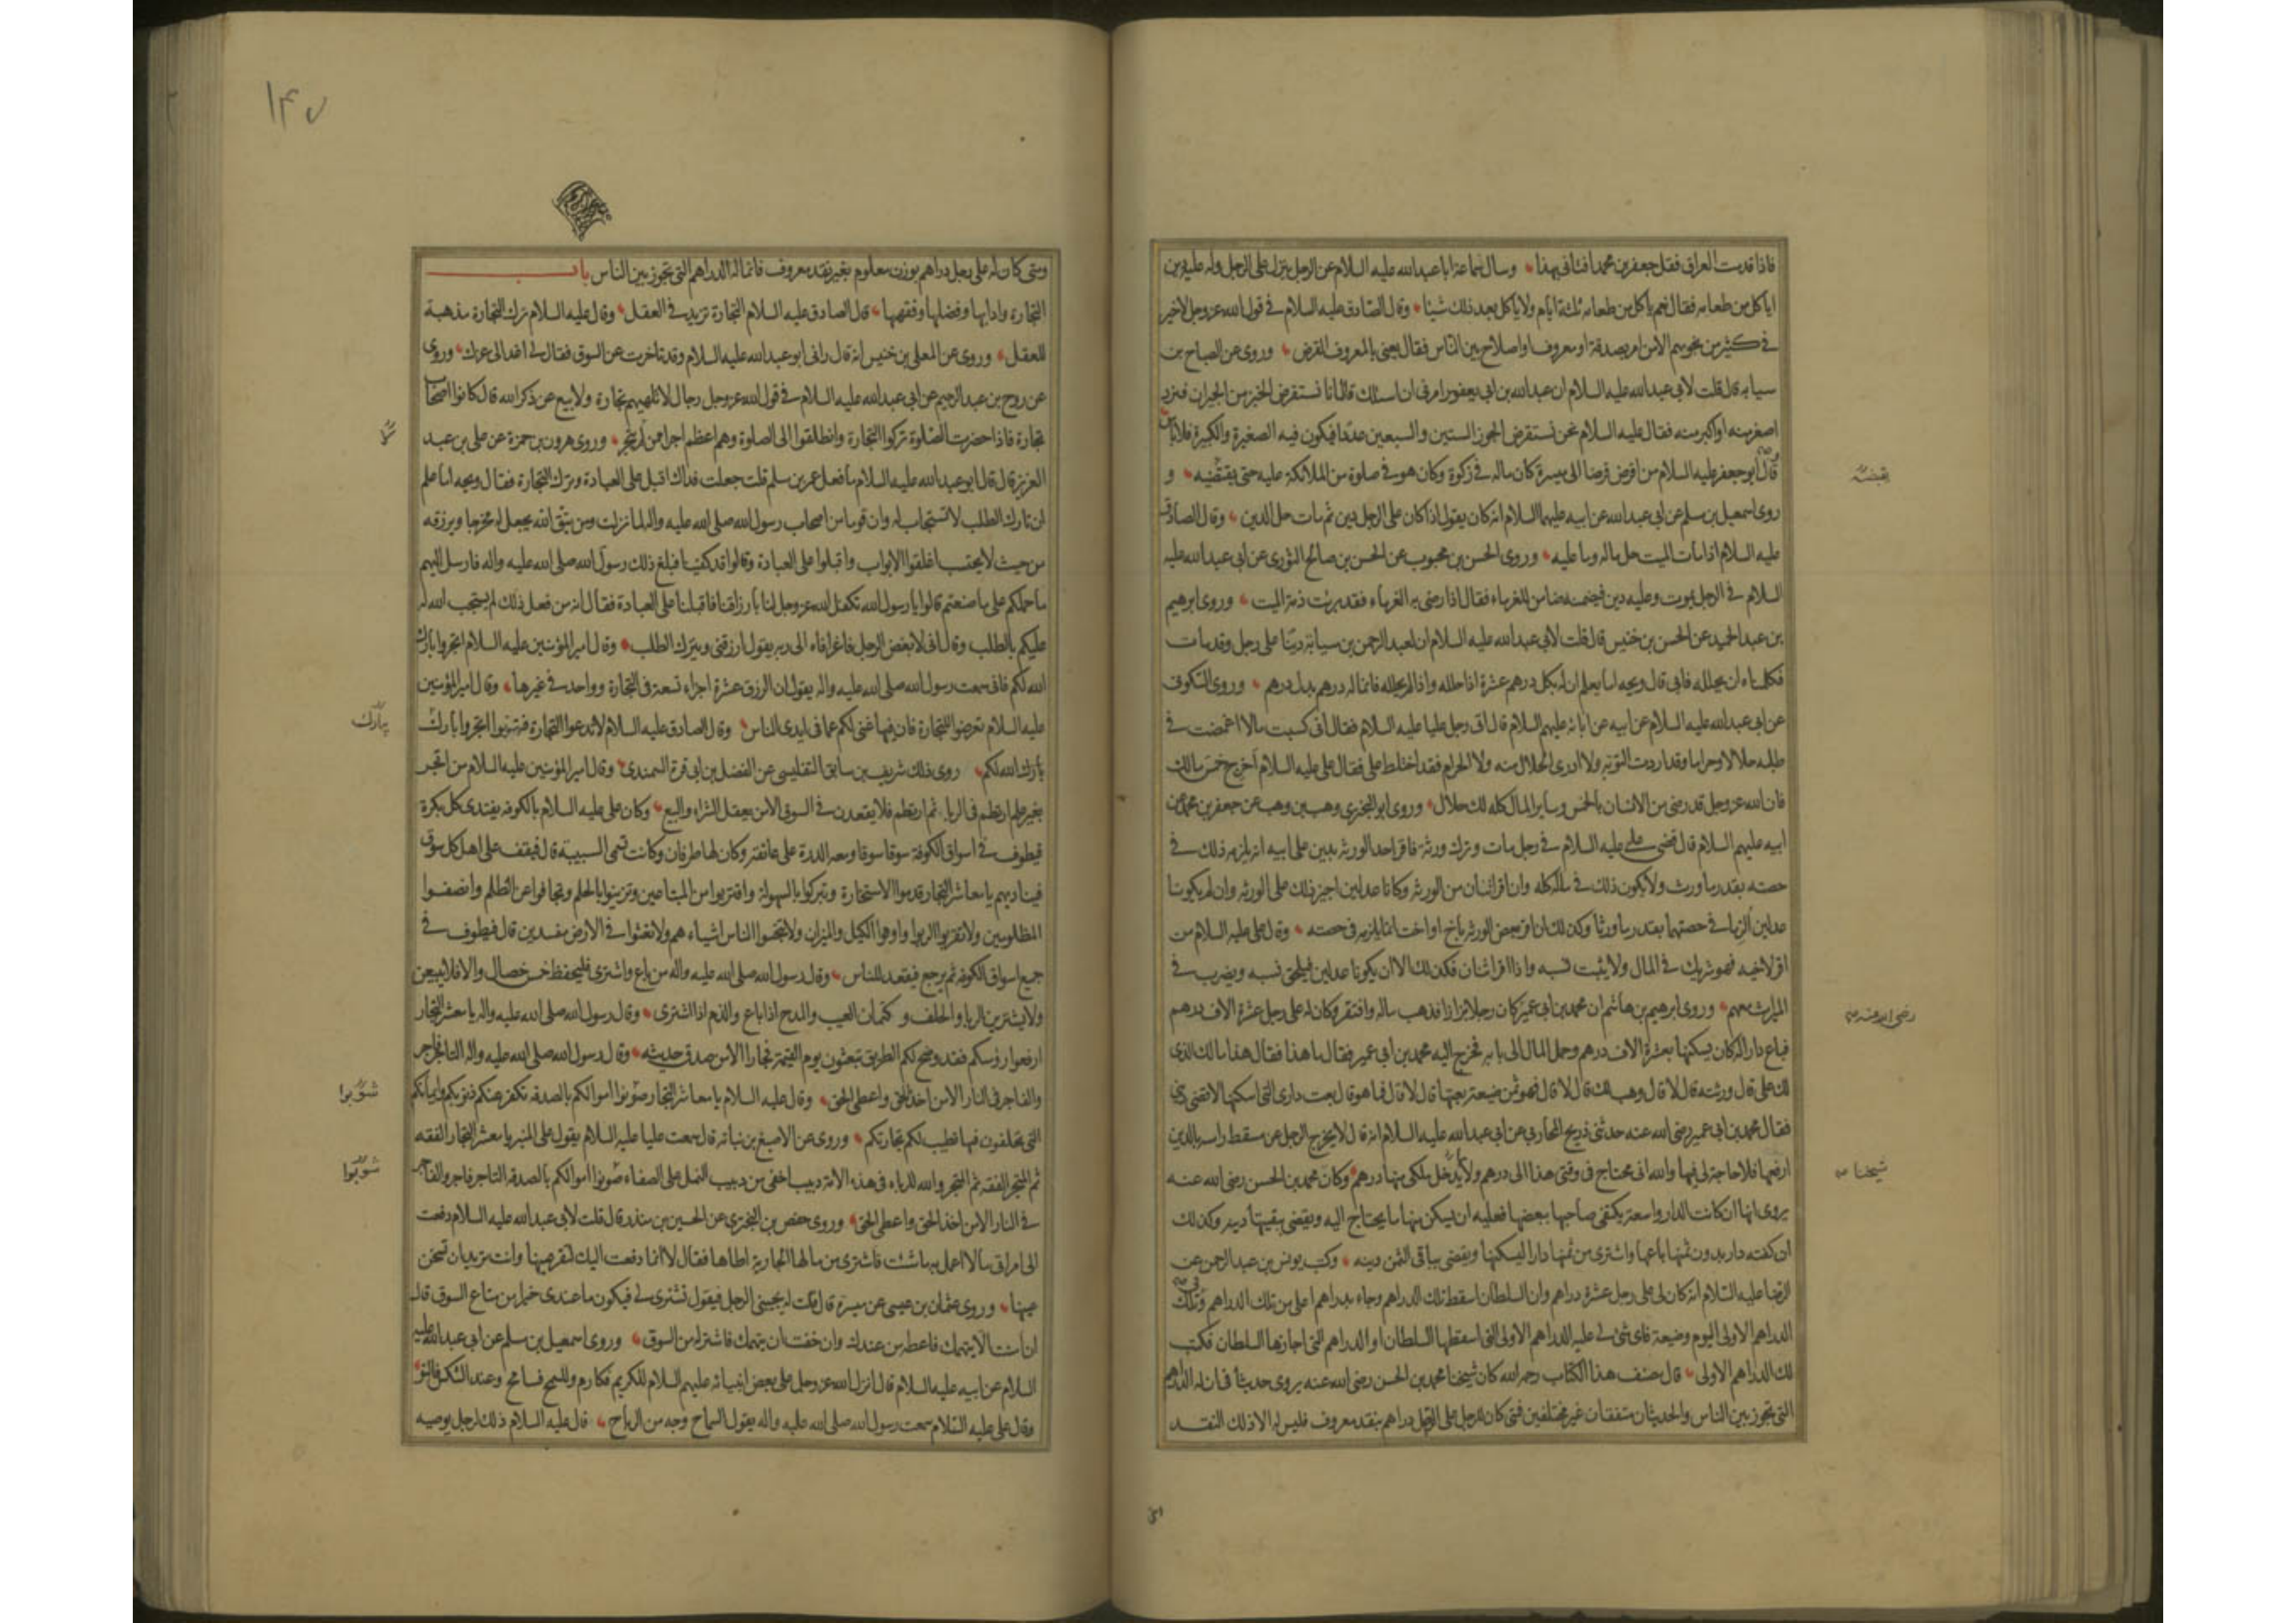 فاذا قدمت العراق فقل جعفر بن محمد افتانى بهذا وسال سماعة ابا عبدالله عليه السلام عن الرجل ينزل على الرجل وله عليه دين
اياكل من طعامه فقال نعم ياكل من طعامه ثلثة ايام ولا ياكل بعد ذلك شيئا وقال الصادق عليه السلام فى قول الله عز وجل لاخير
فى كثير من نجويهم الا من امر بصدقة او معروف او اصلاح بين الناس فقال يعنى بالمعروف القرض وروى عن الصباح بن
سيابه قال قلت لابى عبدالله عليه السلام ان عبدالله بن ابى يعفور امرنى ان اسئلك قال انا نستقرض الخبز من الجيران فنرد
اصغر منه او اكبر منه فقال عليه السلام نحن نستقرض الجوز الستين والسبعين عددا فيكون فيه الصغيرة والكبيرة فلا باس
قال ابو جعفر عليه السلام من اقرض قرضا الى ميسرة كان ماله فى زكوة وكان هو فى صلوة من الملائكة عليه حتى يقتضيه و
روى اسمعيل بن مسلم عن ابى عبدالله عن ابيه عليهما السلام انه كان يقول اذا كان على الرجل دين ثم مات حل الدين وقال الصادق
عليه السلام اذا مات الميت حل ماله وما عليه وروى الحسن بن محبوب عن الحسن بن صالح الثورى عن ابى عبدالله عليه
السلام فى الرجل يموت وعليه دين فيضمنه ضامن للغرماء فقال اذا رضى به الغرماء فقد برئت ذمة الميت وروى ابرهيم
بن عبد الحميد عن الحسن بن خنيس قال قلت لابى عبدالله عليه السلام ان لعبد الرحمن بن سيابة دينا على رجل وقد مات
فكلمناه ان يحلله فابى قال ويحه اما يعلم ان له بكل درهم عشرة اذا حلله واذا لم يحلله فانما له درهم بدل درهم وروى السكونى
عن ابى عبدالله عليه السلام عن ابيه عن ابائه عليهم السلام قال اتى رجل عليا عليه السلام فقال انى كسبت مالا اغمضت فى
طلبه حلالا وحراما وقد اردت التوبة ولا ادرى الحلال منه ولا الحرام فقد اختلط على فقال على عليه السلام اخرج خمس مالك
فان الله عز وجل قد رضى من الانسان بالخمس وساير المال كله لك حلال وروى ابو البخترى وهب بن وهب عن جعفر بن محمد عن
ابيه عليهم السلام قال قضى على عليه السلام فى رجل مات وترك ورثة فاقر احد الورثة بدين على ابيه انه يلزمه ذلك فى
حصته بقدر ما ورث ولا يكون ذلك فى ماله كله وان اقر اثنان من الورثه وكانا عدلين اجيز ذلك على الورثه وان لم يكونا
عدلين الزما فى حصتهما بقدر ما ورثا وكذلك ان اقر بعض الورثه باخ او اخت انما يلزمه فى حصته وقال على عليه السلام من
اقر لاخيه فهو شريك فى المال ولا يثبت نسبه واذا اقر اثنان فكذلك الا ان يكونا عدلين فيلحق نسبه ويضرب فى
الميراث معهم وروى ابرهيم بن هاشم ان محمد بن ابى عمير كان رجلا بزازا فذهب ماله وافتقر وكان له على رجل عشرة الاف درهم
فباع دارا له كان يسكنها بعشرة الاف درهم وحمل المال الى بابه فخرج اليه محمد بن ابى عمير فقال ما هذا فقال هذا مالك الذى
لك على قال ورثته قال لا قال وهب لك قال لا قال فهو ثمن ضيعة بعتها قال لا قال فما هو قال بعت دارى التى اسكنها لاقضى دينى
فقال محمد بن ابى عمير رضى الله عنه حدثنى ذريح المحاربى عن ابى عبدالله عليه السلام انه قال لا يخرج الرجل عن مسقط راسه بالدين
ارفعها فلا حاجة لى فيها والله انى محتاج فى وقتى هذا الى درهم ولا يدخل ملكى منها درهم وكان محمد بن الحسن رضى الله عنه
يروى انها ان كانت الدار واسعة يكتفى صاحبها ببعضها فعليه ان يسكن منها ما يحتاج اليه ويقضى ببقيتها دينه وكذلك
ان كفته دار بدون ثمنها باعها واشترى من ثمنها دارا ليسكنها ويقضى بباقى الثمن دينه وكتب يونس بن عبد الرحمن عن
الرضا عليه السلام انه كان لى على رجل عشرة دراهم وان السلطان اسقط تلك الدراهم وجاء بدراهم اعلى من تلك الدراهم وتلك
الدراهم الاولى اليوم وضيعة فاى شئ لى عليه الدراهم الاولى التى اسقطها السلطان او الدراهم التى اجازها السلطان فكتب
لك الدراهم الاولى قال مصنف هذا الكتاب رحمه الله كان شيخنا محمد بن الحسن رضى الله عنه يروى حديثا فى ان له الدراهم
التى تجوز بين الناس والحديثان متفقان غير مختلفين فمتى كان للرجل على الرجل دراهم بنقد معروف فليس له الا ذلك النقد
يقبضه
رضى الله عنه
شيخنا
١٤٧
ومتى كان له على رجل دراهم بوزن معلوم بغير نقد معروف فانما له الدراهم التى تجوز بين الناس باب
التجارة وادابها وفضلها وفقهها قال الصادق عليه السلام التجارة تزيد فى العقل وقال عليه السلام ترك التجارة مذهبة
للعقل وروى عن المعلى بن خنيس انه قال رانى ابو عبدالله عليه السلام وقد تاخرت عن السوق فقال لى اغد الى عزك وروى
عن روح بن عبد الرحيم عن ابى عبدالله عليه السلام فى قول الله عز وجل رجال لا تلهيهم تجارة ولا بيع عن ذكر الله قال كانوا اصحاب
تجارة فاذا حضرت الصلوة تركوا التجارة وانطلقوا الى الصلوة وهم اعظم اجرا ممن لم يتجر وروى هرون بن حمزة عن على بن عبد
العزيز قال قال ابو عبدالله عليه السلام ما فعل عمر بن مسلم قلت جعلت فداك اقبل على العبادة وترك التجارة فقال ويحه اما علم
ان تارك الطلب لا تستجاب له وان قوما من اصحاب رسول الله صلى الله عليه واله لما نزلت ومن يتق الله يجعل له مخرجا ويرزقه
من حيث لا يحتسب اغلقوا الابواب واقبلوا على العبادة وقالوا قد كفينا فبلغ ذلك رسول الله صلى الله عليه واله فارسل اليهم
ما حملكم على ما صنعتم قالوا يا رسول الله تكفل الله عز وجل لنا بارزاقنا فاقبلنا على العبادة فقال انه من فعل ذلك لم يستجب الله له
عليكم بالطلب وقال انى لابغض الرجل فاغرا فاه الى ربه يقول ارزقنى ويترك الطلب وقال امير المؤمنين عليه السلام اتجروا بارك
الله لكم فانى سمعت رسول الله صلى الله عليه واله يقول ان الرزق عشرة اجزاء تسعة فى التجارة وواحد فى غيرها وقال امير المؤمنين
عليه السلام تعرضوا للتجارة فان فيها غنى لكم عما فى ايدى الناس وقال الصادق عليه السلام لا تدعوا التجارة فتهونوا اتجروا بارك
بارك الله لكم روى ذلك شريف بن سابق التفليسى عن الفضل بن ابى قرة السمندى وقال امير المؤمنين عليه السلام من اتجر
بغير علم ارتطم فى الربا ثم ارتطم فلا يقعدن فى السوق الا من يعقل الشراء والبيع وكان على عليه السلام بالكوفه يغتدى كل بكرة
فيطوف فى اسواق الكوفة سوقا سوقا ومعه الدرة على عاتقه وكان لها طرفان وكانت تسمى السبيبة قال فيقف على اهل كل سوق
فيناديهم يا معاشر التجار قدموا الاستخارة وتبركوا بالسهولة واقتربوا من المبتاعين وتزينوا بالحلم وتجافوا عن الظلم وانصفوا
المظلومين ولا تقربوا الربوا واوفوا الكيل والميزان ولا تبخسوا الناس اشياءهم ولا تعثوا فى الارض مفسدين قال فيطوف فى
جميع اسواق الكوفه ثم يرجع فيقعد للناس وقال رسول الله صلى الله عليه واله من باع واشترى فليحفظ خمس خصال والا فلا يبيعن
ولا يشترين الربا والحلف و كتمان العيب والمدح اذا باع والذم اذا اشترى وقال رسول الله صلى الله عليه واله يا معشر التجار
ارفعوا رؤسكم فقد وضح لكم الطريق تبعثون يوم القيمة فجارا الا من صدق حديثه وقال رسول الله صلى الله عليه واله التاجر فاجر
والفاجر فى النار الا من اخذ الحق واعطى الحق وقال عليه السلام يا معاشر التجار صونوا اموالكم بالصدقه تكفر عنكم ذنوبكم وايمانكم
التى تحلفون فيها تطيب لكم تجارتكم وروى عن الاصبغ بن نباته قال سمعت عليا عليه السلام يقول على المنبر يا معشر التجار الفقه
ثم المتجر الفقه ثم المتجر والله للربا فى هذه الامة دبيب اخفى من دبيب النمل على الصفاء صونوا اموالكم بالصدقه التاجر فاجر والفاجر
فى النار الا من اخذ الحق واعطى الحق وروى حفص بن البخترى عن الحسين بن منذر قال قلت لابى عبدالله عليه السلام دفعت
الى امراتى مالا اعمل به ما شئت فاشترى من مالها الجارية اطاها فقال لا انما دفعت اليك لتقر عينها وانت تريد ان تسخن
عينها وروى عثمان بن عيسى عن ميسرة قال قلت له يجيئنى الرجل فيقول تشترى لى فيكون ما عندى خيرا من متاع السوق قال
ان امنت الا يتهمك فاعطه من عندك وان خفت ان يتهمك فاشتر له من السوق وروى اسمعيل بن مسلم عن ابى عبدالله عليه
السلام عن ابيه عليه السلام قال انزل الله عز وجل على بعض انبيائه عليهم السلام للكريم فكارم وللسمح فسامح وعند الشكس فالتو
وقال على عليه السلام سمعت رسول الله صلى الله عليه واله يقول السماح وجه من الرباح قال عليه السلام ذلك لرجل يوصيه
يبارك
شوبوا
شوبوا